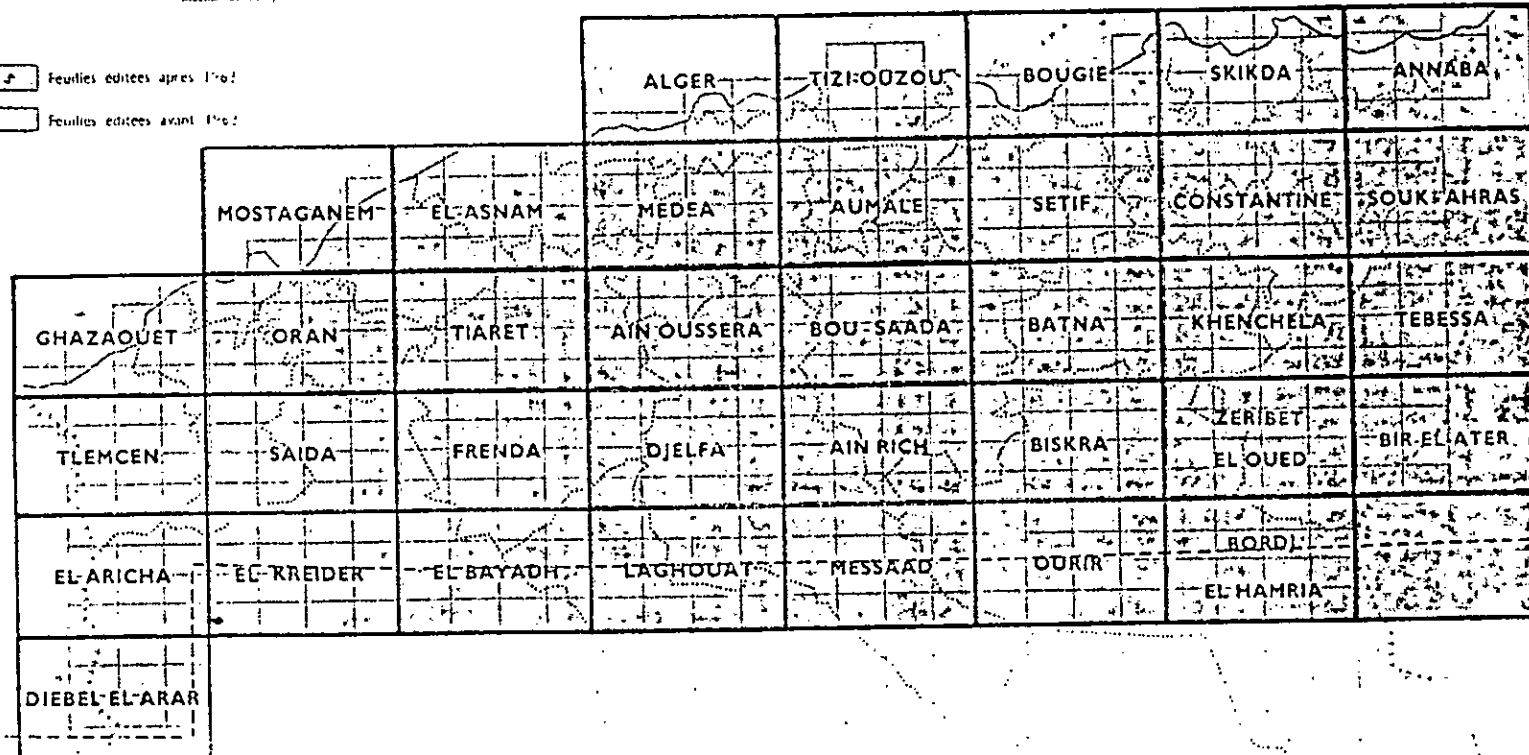 Feuilles editees apres
Feuilles editees avant
ALGER TIZI-OUZOU BOUGIE SKIKDA ANNABA
MOSTAGANEM EL-ASNAM MEDEA AUMALE SETIF CONSTANTINE SOUK-AHRAS
GHAZAOUET ORAN TIARET AIN OUSSERA BOU-SAADA BATNA KHENCHELA TEBESSA
TLEMCEN SAIDA FRENDA DJELFA AIN RICH BISKRA ZERIBET EL OUED BIR-EL-ATER
EL-ARICHA EL-KREIDER EL BAYADH LAGHOUAT MESSAAD OURIR BORDJ EL HAMRIA
DJEBEL-EL-ARAR